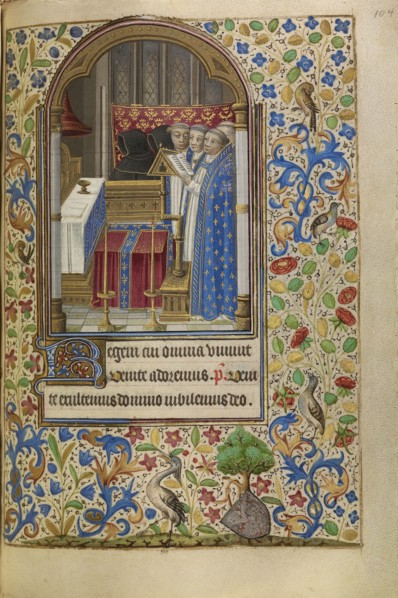 104
Regem cui omnia vivunt
venite adoremus. p̃s. Veni
te exultemus domino iubilemus deo.